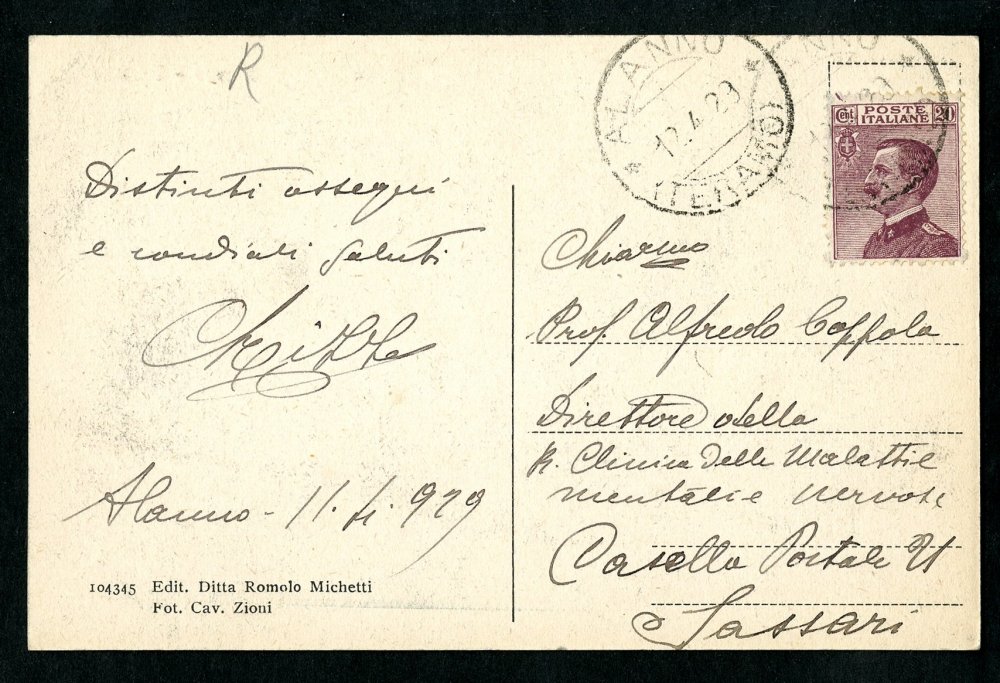 R
Distinti ossequi
e cordiali saluti
Alanno - 11.4.929
104345 Edit. Ditta Romolo Michetti
Fot. Cav. Zioni
ALANNO
12.4.29
(TERAMO)
ANNO
Cent. POSTE ITALIANE 20
Chiarmo
Prof. Alfredo Coppola
Direttore della
R. Clinica delle Malattie
mentali e nervose
Casella Postale
Sassari